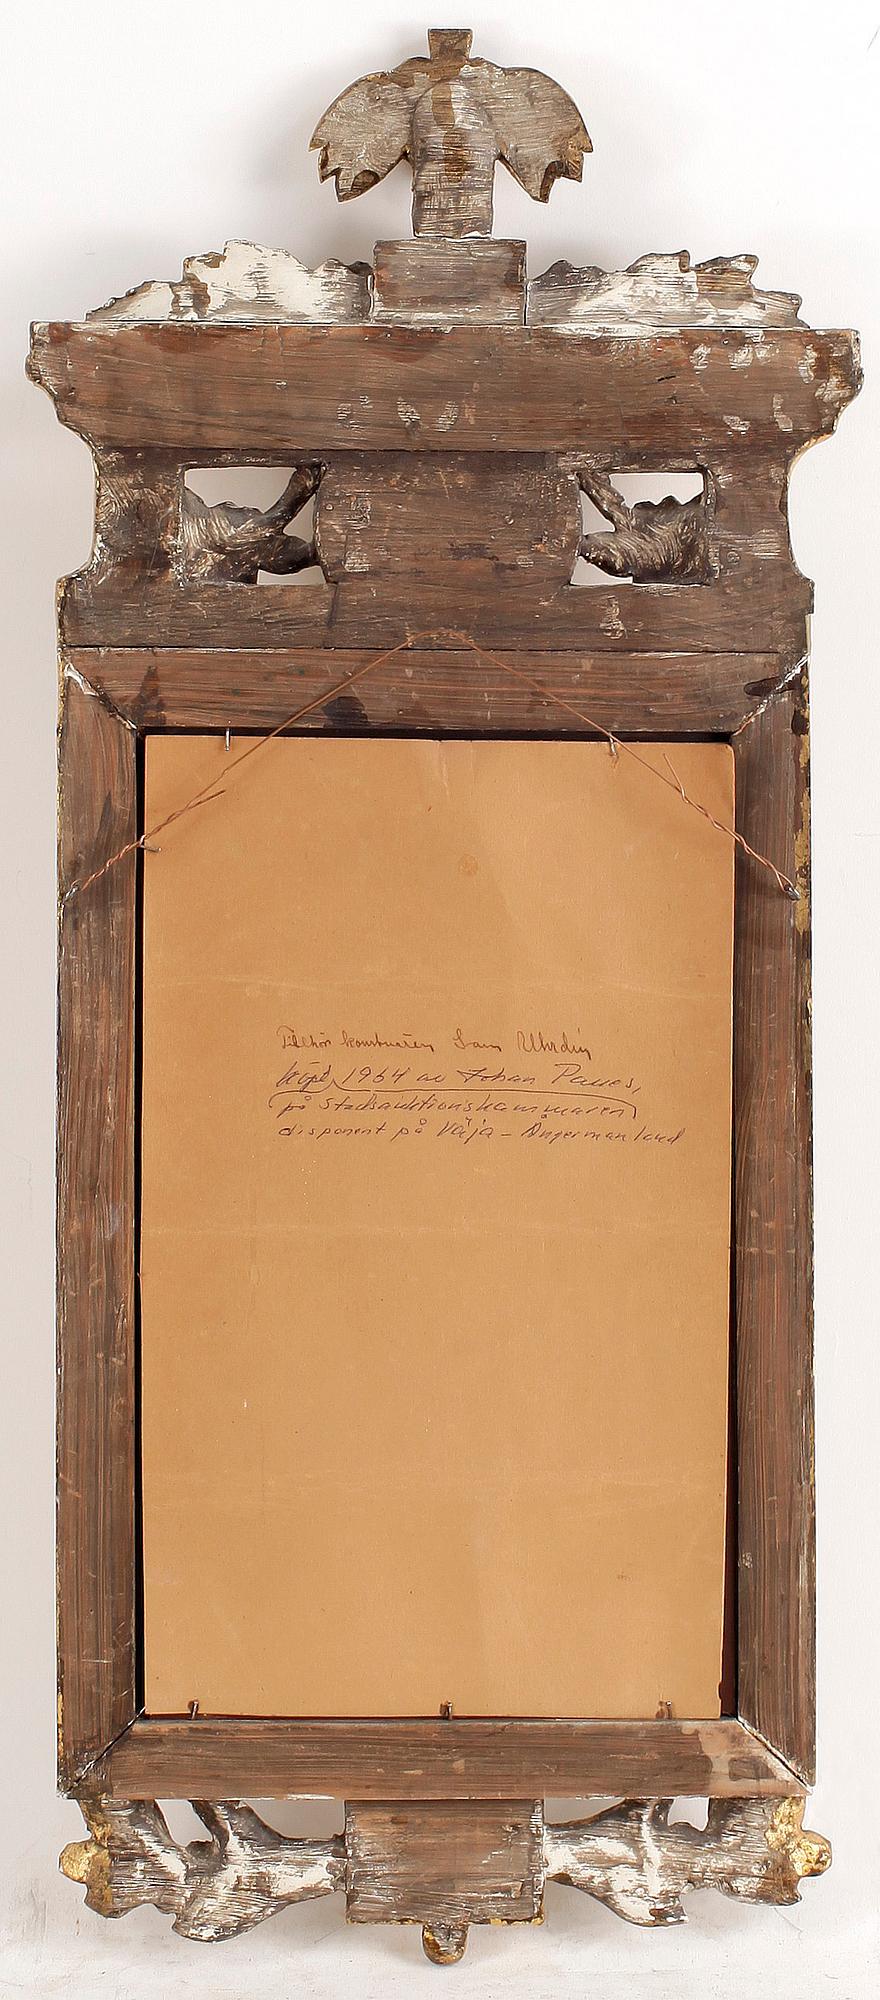 Tillhör konstnären Sam Uhrdin
köpt 1964 av Johan Paues,
på Stadsauktionskammaren
disponent på Väja - Ångermanland